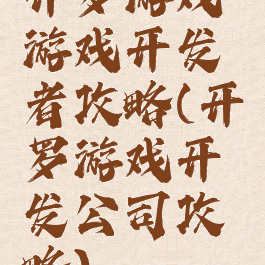 开罗游戏
游戏开发
者攻略(开
罗游戏开
发公司攻
略)